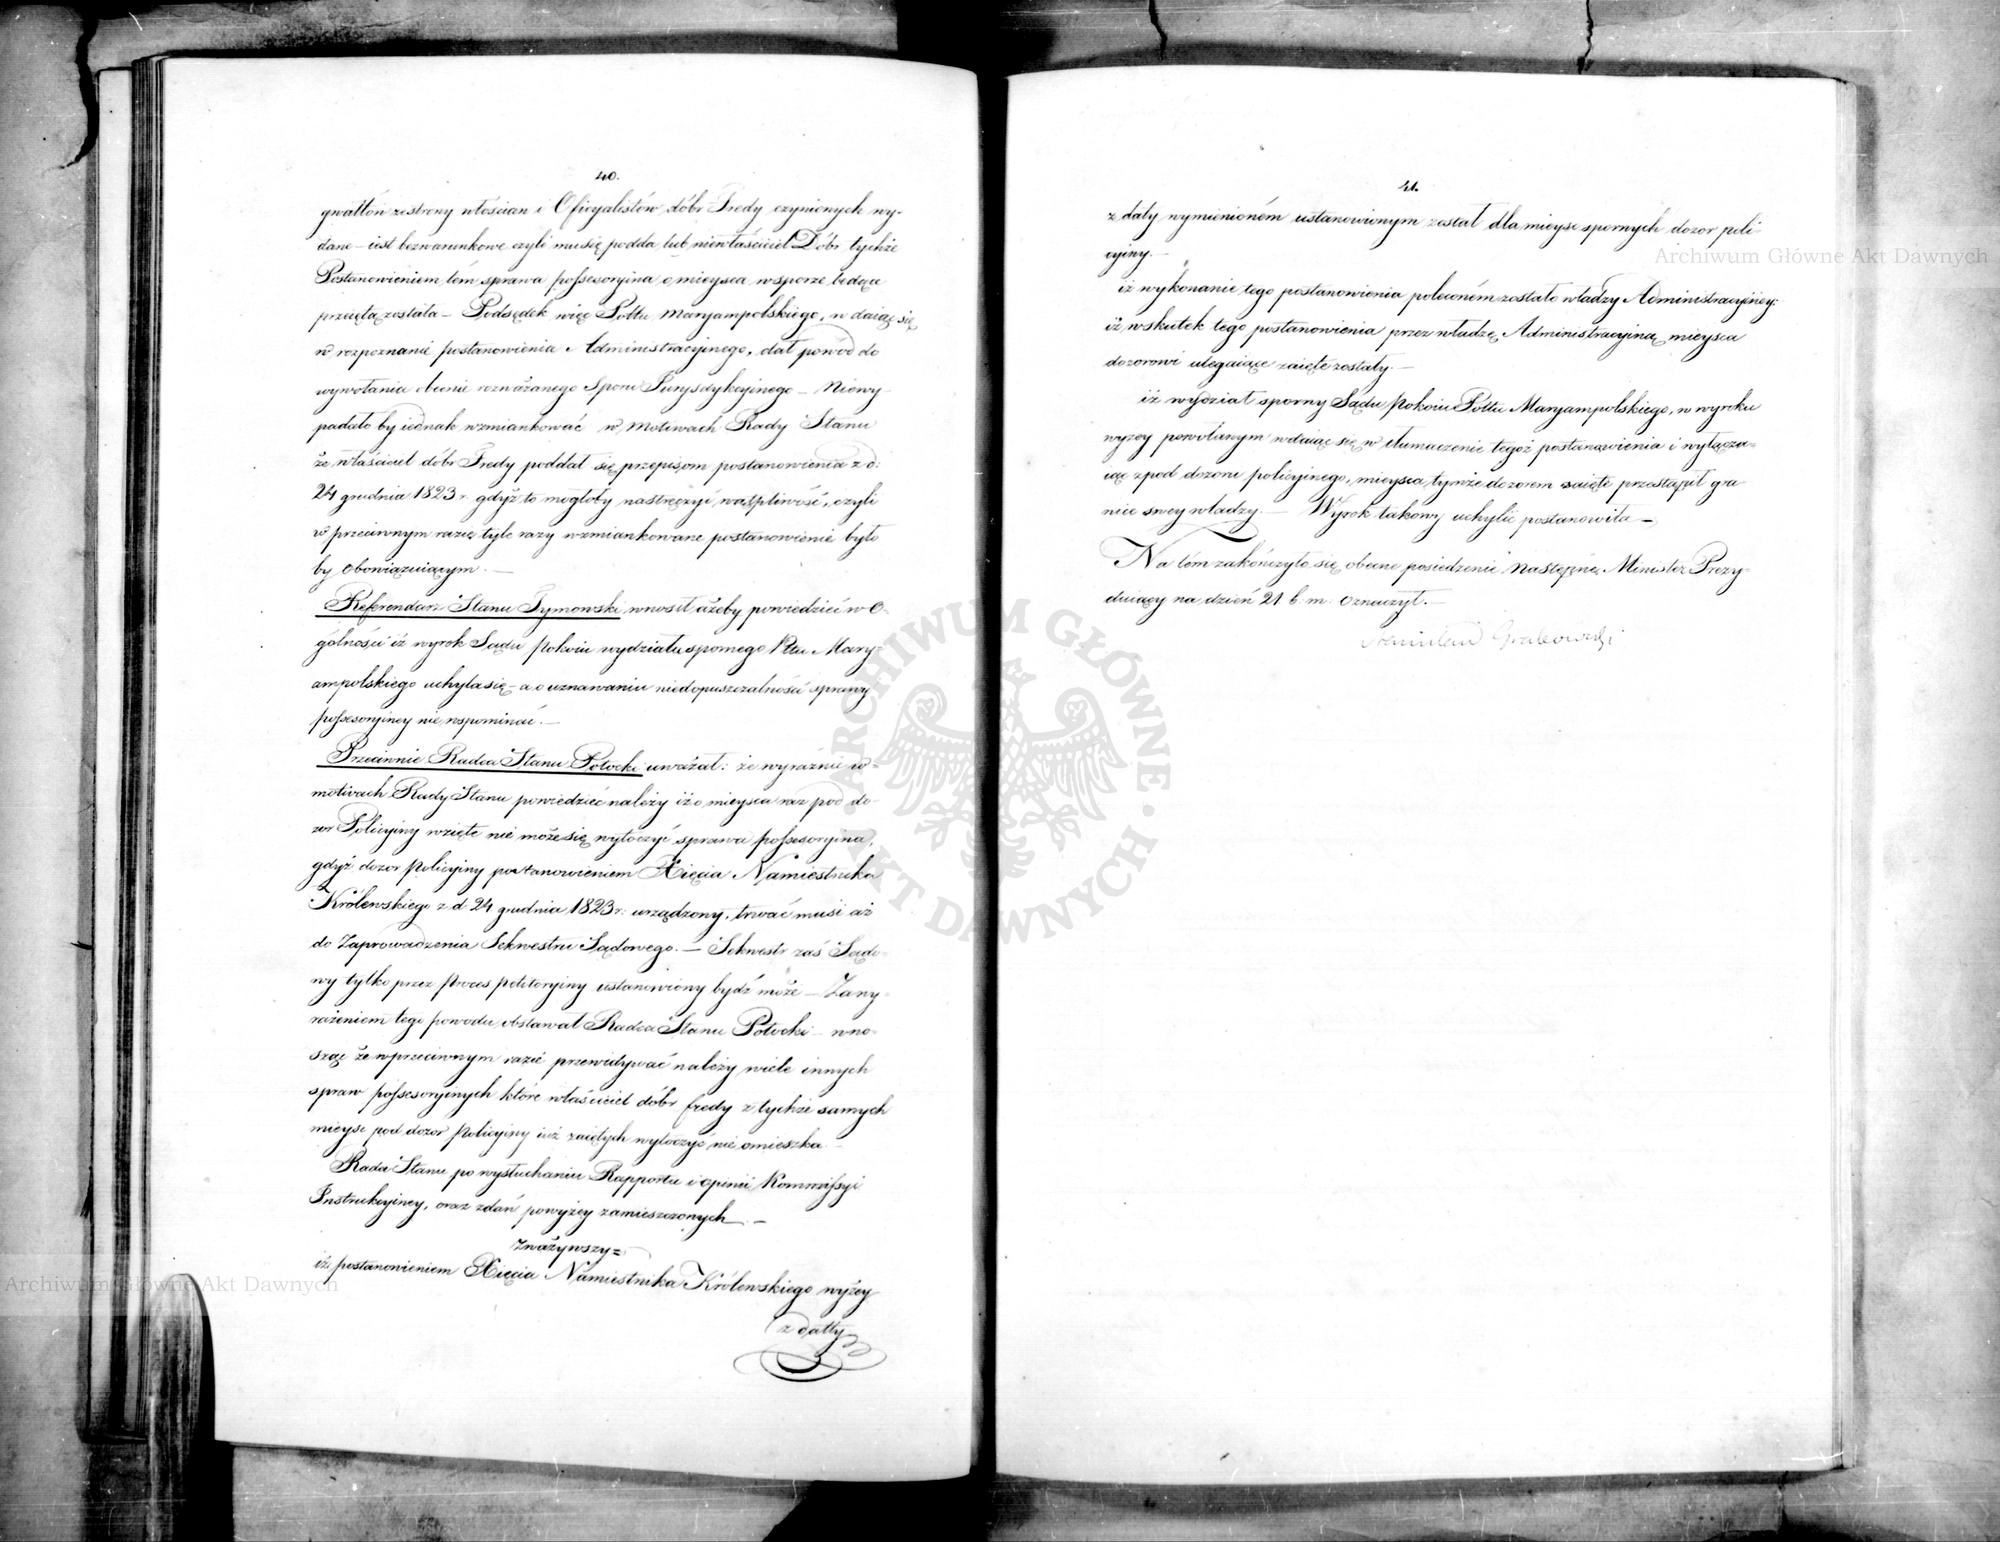 40.
gwałtów ze strony włościan i Oficyalistów dóbr Fredy czynionych wy-
dane – iest bezwarunkowe czyli mu się podda lub nie właściciel Dóbr tychże
Postanowieniem tém sprawa possessoryjna o mieysca w sporze będące
przeciętą została – Podsędek więc Pottu Maryampolskiego, wdaiąc się
w rozpoznanie postanowienia Administracyjnego, dał powód do
wywołania obecnie rozważanego Sporu Jurysdykcyjnego – Niewy-
padało by iednak wzmiankować w Motiwach Rady Stanu
że właściciel dóbr Fredy poddał się przepisom postanowienia z d:
24 grudnia 1823 r. gdyż to mogłoby nastręczyć wątpliwość, czyli
w przeciwnym razie tyle razy wzmiankowane postanowienie było
by obowiązuiącym. —
Referendarz Stanu Tymowski wnosił ażeby powiedzieć w O-
gólności iż wyrok Sądu Pokoiu wydziału spornego Pttu Mary-
ampolskiego uchyla się – a o uznawaniu niedopuszczalności sprawy
possessoryiney nie wspominać. —
Przeciwnie Radca Stanu Potocki uważał: że wyraźnie w
motivach Rady Stanu powiedzieć należy iż o mieysca raz pod do-
zor Policyiny wzięte nie może się wytoczyć sprawa possessoryina,
gdyż dozor Policyiny postanowieniem Xięcia Namiestnika
Królewskiego z d 24 grudnia 1823 r: urządzony, trwać musi aż
do Zaprowadzenia Sekwestru Sądowego. — Sekwestr zaś Sądo-
wy tylko przez Proces petitoryiny ustanowiony bydź może — Za wy-
rażeniem tego powodu obstawał Radca Stanu Potocki – wno-
sząc że w przeciwnym razie przewidywać należy wiele innych
spraw possessoryinych które właściciel dóbr fredy z tychże samych
mieysc pod dozor Policyiny iuż zaiętych wytoczyć nie omieszka –
Rada Stanu po wysłuchaniu Rapportu i opinii Kommissyi
Instrukcyiney, oraz zdań powyżey zamieszczonych. —
Zważywszy =
iż postanowieniem Xięcia Namiestnika Królewskiego wyżey
z datty
41.
z daty wymienioném ustanowionym został dla mieysc spornych dozor poli-
cyiny. —
iż wykonanie tego postanowienia poleconém zostało władzy Administracyiney;
iż w skutek tego postanowienia przez władzę Administracyiną mieysca
dozorowi ulegaiące zaięte zostały. —
iż wydział sporny Sądu Pokoiu Pottu Maryampolskiego, w wyroku
wyżey powołanym wdaiąc się w tłumaczenie tegoż postanowienia i wyłącza-
iąc z pod dozoru policyinego, mieysca tymże dozorem zaięte przestąpił gra-
nice swey władzy. — Wyrok takowy uchylić postanowiła —
Na tém zakończyło się obecne posiedzenie Następne Minister Prezy-
duiący na dzień 21 b. m. oznaczył. —
Stanisław Grabowski
Archiwum Główne Akt Dawnych
Archiwum Główne Akt Dawnych
ARCHIWUM GŁÓWNE · AKT DAWNYCH ·